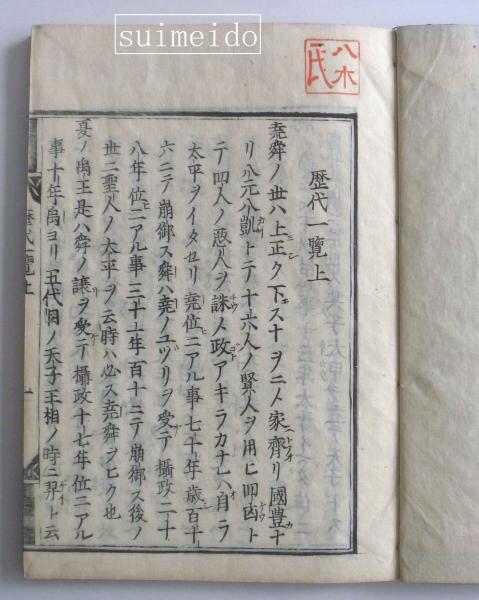 suimeido
八木氏
歴代一覧上
堯舜ノ世ハ上正ク下スナヲニメ家齊リ國豊ナ
リ八元八凱トテ十六人ノ賢人ヲ用ヒ四凶ト
テ四人ノ悪人ヲ誅メ政アキラカナレハ自ラ
太平ヲイタセリ堯位ニアル事七十年歳百十
六ニテ崩御ス舜ハ堯ノユヅリヲ受テ攝政二十
八年位ニアル事三十七年百十ニテ崩御ス後ノ
世ニ聖人ノ太平ヲ云時ハ必ス堯舜ヲヒク也
夏ノ禹王是ハ舜ノ譲ヲ受テ攝政十七年位ニアル
事十年禹ヨリ五代目ノ天子王相ノ時ニ羿ト云
歴代一覧上